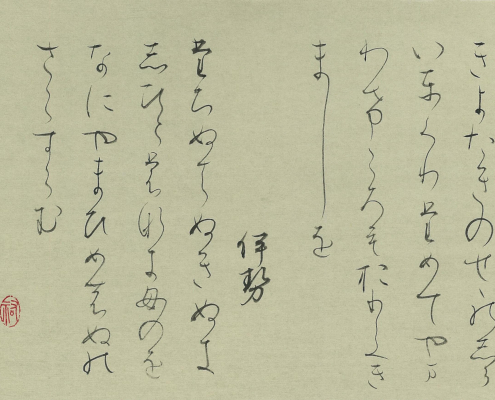 きよたきのせゝのしら
いとくりためてやま
わけころもおりてき
ましを
伊勢
たちぬはぬきぬき
しひともなきものを
なにやまひめのぬの
さらすらむ